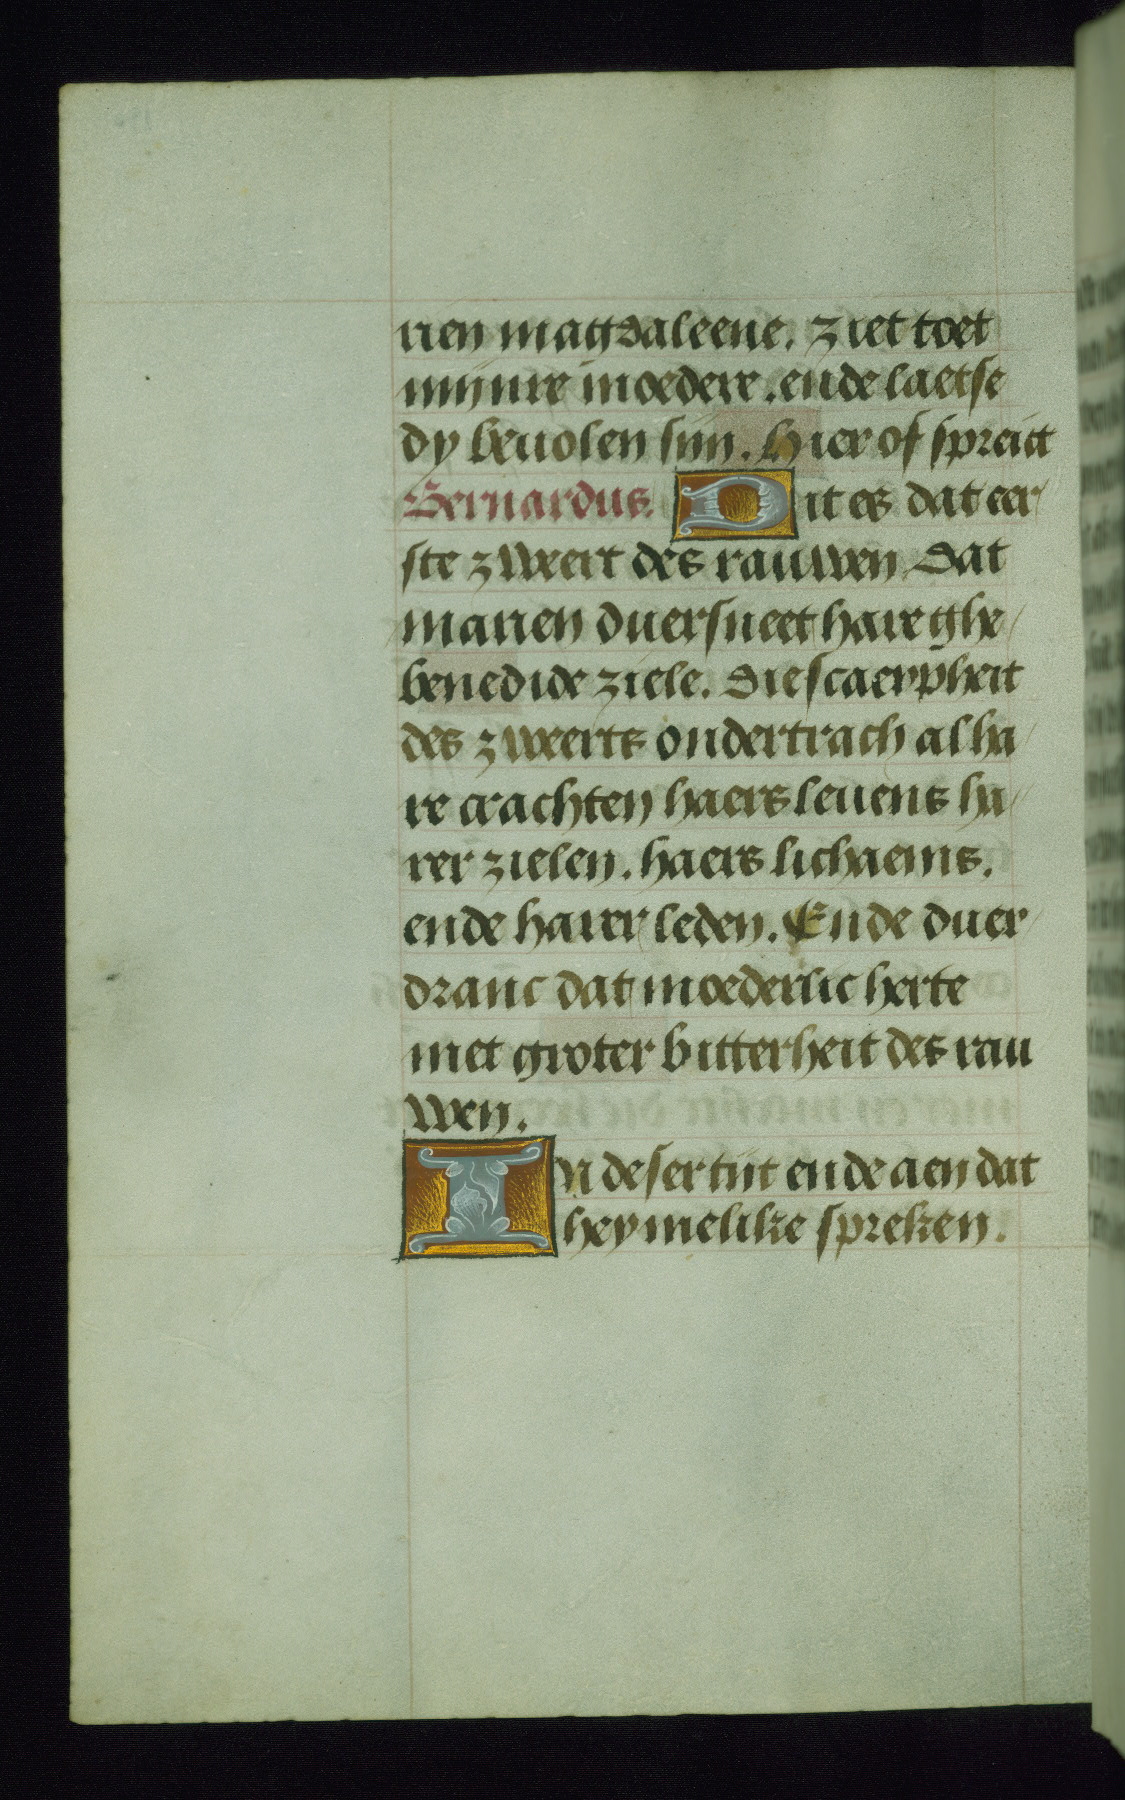 rien magdaleene. ziet toet
mijnre moedere. ende laetse
dy beuolen sijn. Hier of spreict
Bernardus. Dit es dat eer
ste zweert des rauwen dat
marien duersneet hare ghe
benedide ziele. die scaerpheit
des zweerts ondertrach al ha
re crachten haers leuens ha
rer zielen. haers lichaems.
ende harer leden. Ende duer
dranc dat moederlic herte
met groter bitterheit des rau
wen.
In deser tijt ende aen dat
heymelike spreken.